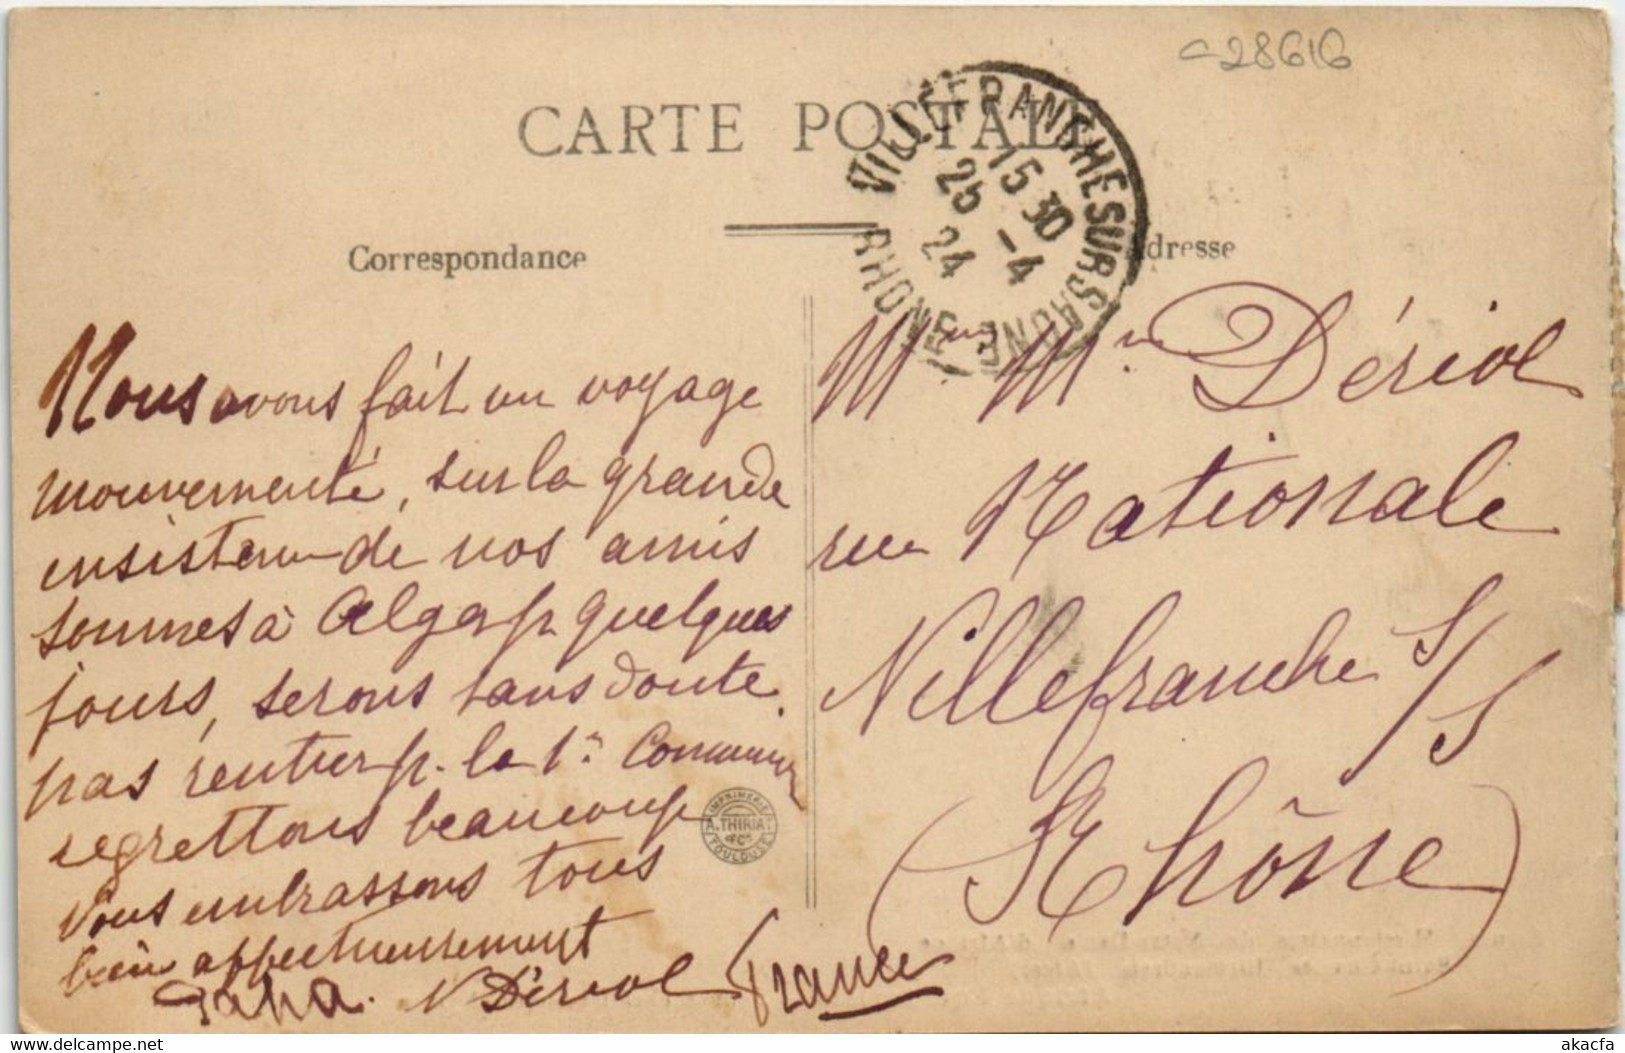 c28616
CARTE POSTALE
VILLEFRANCHE SUR SAONE
15 30
25 -4
24
RHONE
Correspondance
Adresse
Nous avons fait un voyage
mouvementé, sur la grande
insistance de nos amis
sommes à Alger p. quelques
jours, serons sans doute
pas rentrer p. la 1re Communion
regrettons beaucoup
Vous embrassons tous
bien affectueusement
N Dériol
Mme Dériol
rue Nationale
Villefranche S/S
(Rhône)
France
IMPRIMERIE
A. THIRIAT
& Cie
TOULOUSE
Missionnaires de Notre-Dame d'Afrique
akacfa